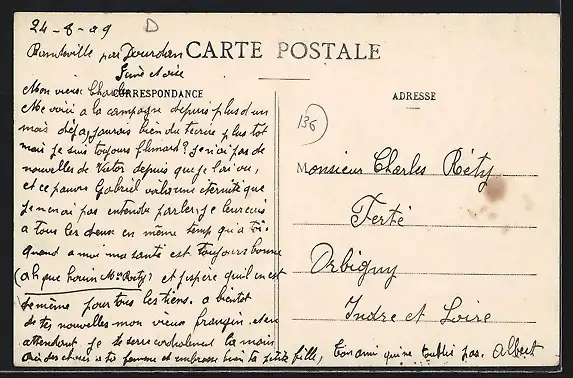 24-8-09
D
par Dourdan
Seine et oise
CARTE POSTALE
CORRESPONDANCE
Mon vieux Charles
Me voici a la campagne depuis plus d'un
mois déja, jaurais bien du tecrire plus tot
mais je suis toujours flemard? Je n'ai pas de
nouvelles de Victor depuis que je l'ai vu,
et ce pauvre Gabriel voila une éternité que
je n'en ai pas entendu parler, je leur écris
a tous les deux en même temp qu'a toi.
quand a moi ma santé est toujours bonne
et j'espère qu'il en est
de même pour tous les tiens. a bientot
de tes nouvelles mon vieux frangin. et en
attendant je te serre cordialement la main
a ta femme et embrasse bien ta petite fille, ton ami qui ne toublie pas. Albert
ADRESSE
136
Monsieur Charles Réty
Ferté
Orbigny
Indre et Loire